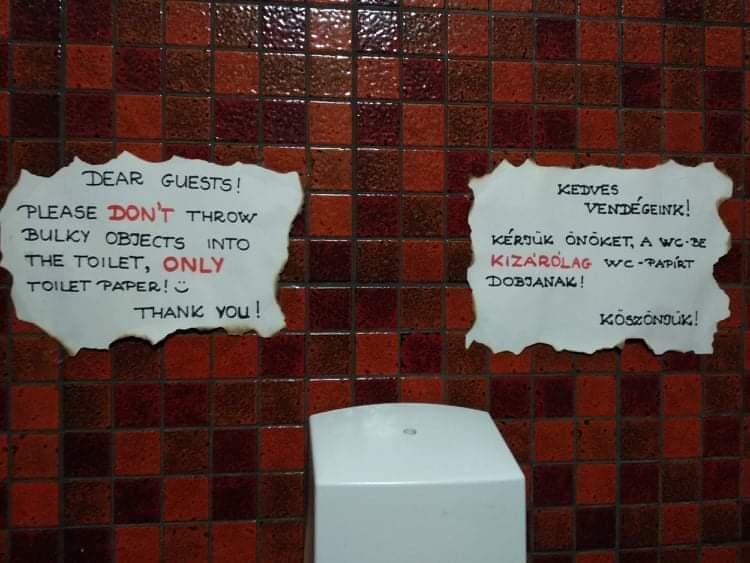 DEAR GUESTS!
PLEASE DON'T THROW
BULKY OBJECTS INTO
THE TOILET, ONLY
TOILET PAPER! :)
THANK YOU!
KEDVES
VENDÉGEINK!
KÉRJÜK ÖNÖKET, A WC-BE
KIZÁRÓLAG WC-PAPÍRT
DOBJANAK!
KÖSZÖNJÜK!